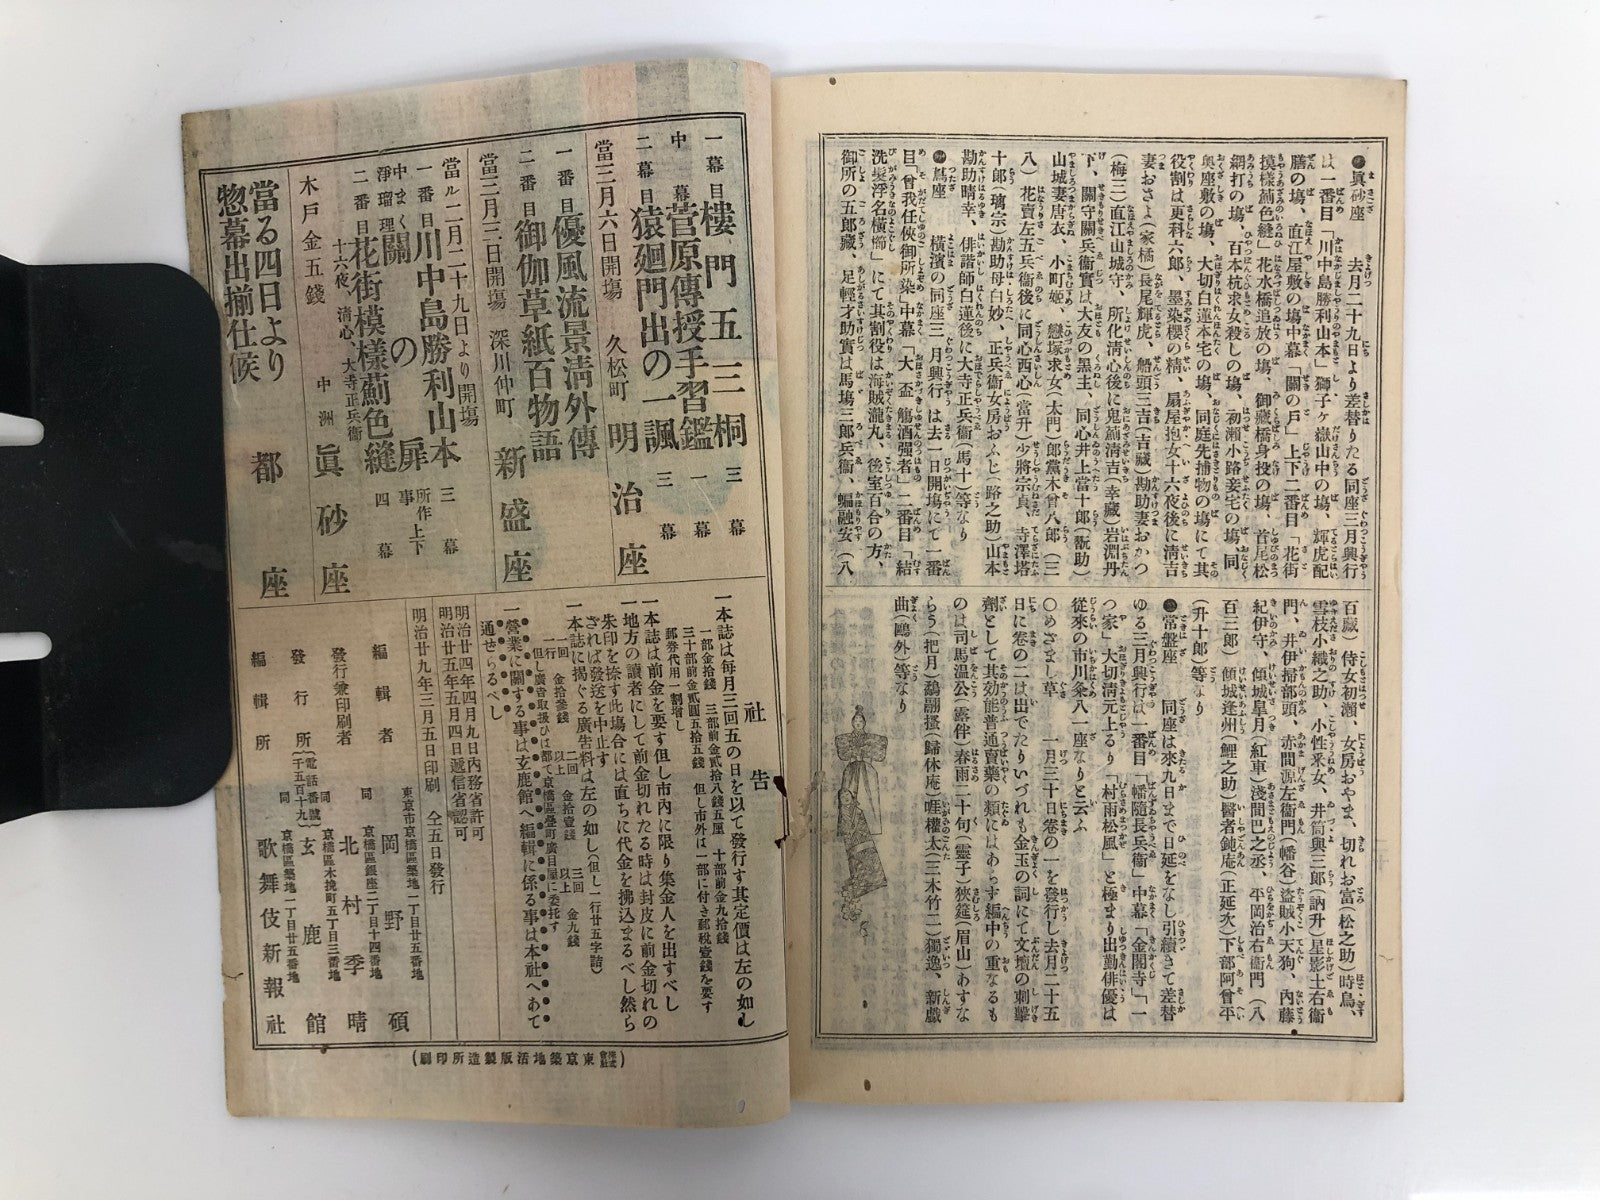 ●眞砂座　去月二十九日より差替りたる同座三月興行
は一番目「川中島勝利山本」獅子ヶ嶽山中の塲、輝虎配
膳の塲、直江屋敷の塲中幕「關の戸」上下二番目「花街
摸樣薊色縫」花水橋追放の塲、御藏橋身投の塲、首尾松
網打の塲、百本杭求女殺しの塲、初瀬小路妾宅の塲、同
奥座敷の塲、大切白蓮本宅の塲、同庭先捕物の塲にて其
役割は更科六郎、墨染櫻の精、扇屋抱女十六夜後に淸吉
妻おさよ（家橘）長尾輝虎、船頭三吉（吉藏）勘助妻おかつ
（梅三）直江山城守、所化淸心後に鬼薊淸吉（幸藏）岩淵丹
下、關守關兵衞實は大友の黒主、同心井上當十郎（翫助）
山城妻唐衣、小町姫、戀塚求女（太門）郎黨木曾八郎（三
八）花賣左五兵衞後に同心西心（當升）少將宗貞、寺澤塔
十郎（璃宗）勘助母白妙、正兵衞女房おふじ（路之助）山本
勘助晴幸、俳諧師白蓮後に大寺正兵衞（馬十）等なり
座　橫濱の同座三月興行は去一日開塲にて一番
目「曾我任俠御所染」中幕「大盃觴酒强者」二番目「結
洗髮浮名橫櫛」にて其割役は海賊瀧丸、後室百合の方、
御所の五郎藏、足輕才助實は馬塲三郎兵衞、蝙蝠安（八
百藏）侍女初瀬、女房おやま、切れお富（松之助）時鳥、
雪枝小織之助、小性釆女、井筒與三郎（訥升）星影土右衞
門、井伊掃部頭、赤間源左衞門（幡谷）盗賊小天狗、内藤
紀伊守、傾城皐月（紅車）淺間巴之丞、平岡治右衞門（八
百三郎）傾城逢州（鯉之助）醫者鈍庵（正延次）下部阿曾平
（升十郎）等なり
●常盤座　同座は來九日まで日延をなし引續きて差替
ゆる三月興行は一番目「幡隨長兵衞」中幕「金閣寺」「一
つ家」大切淸元上るり「村雨松風」と極まり出勤俳優は
從來の市川粂八一座なりと云ふ
○めさまし草　一月三十日卷の一を發行し去月二十五
日に卷の二は出でたりいづれも金玉の詞にて文壇の刺擊
劑として其効能普通賣藥の類にはあらず編中の重なるも
のは司馬温公（露伴）春雨二十句（靈子）狹筵（眉山）あすな
らう（把月）鷸翮搔（歸休庵）唯權太（三木竹二）獨逸、新戯
曲（鷗外）等なり
一幕目　樓門五三桐　三幕
中幕　菅原傳授手習鑑　一幕
二幕目　猿廻門出の一諷　三幕
當三月六日開塲　久松町　明治座
一番目　優風流景淸外傳
二番目　御伽草紙百物語
當三月三日開塲　深川仲町　新盛座
當ル二月二十九日より開塲
一番目　川中島勝利山本　三幕
中まく　淨瑠理　關の扉　所作事　上下
二番目　花街模樣薊色縫　四幕
十六夜、淸心、大寺正兵衞
木戸金五錢　中洲　眞砂座
當る四日より
惣幕出揃仕候　都座
社告
一本誌は毎月三回五の日を以て發行す其定價は左の如し
一部金拾錢　三部前金貳拾八錢五厘　十部前金九拾錢
三十部前金貳圓五拾五錢　但し市外は一部に付き郵稅壹錢を要す
郵券代用一割增し
一本誌は前金を要す但し市内に限り集金人を出すべし
一地方の讀者にして前金切れたる時は封皮に前金切れの
朱印を捺す此塲合には直ちに代金を拂込まるべし然ら
ざれば發送を中止す
一本誌に揭ぐる廣告料は左の如し（但し一行廿五字詰）
一行　一回　金拾參錢　二回以上　金拾壹錢　三回以上　金九錢
但し廣告取扱ひは都て京橋區疊町廣目屋に委托す
一營業に關する事は玄鹿館へ編輯に係る事は本社へあて
通せらるべし
明治廿四年四月九日内務省許可
明治廿五年五月四日遞信省認可
明治廿九年三月五日印刷　仝五日發行
編輯者　東京市京橋區築地一丁目廿五番地　岡野碩
發行兼印刷者　同京橋區銀座二丁目十四番地　北村季晴
發行所（電話番號千五百十九）　同京橋區木挽町五丁目三番地　玄鹿館
編輯所　同京橋區築地一丁目廿五番地　歌舞伎新報社
（株式會社東京築地活版製造所印刷）